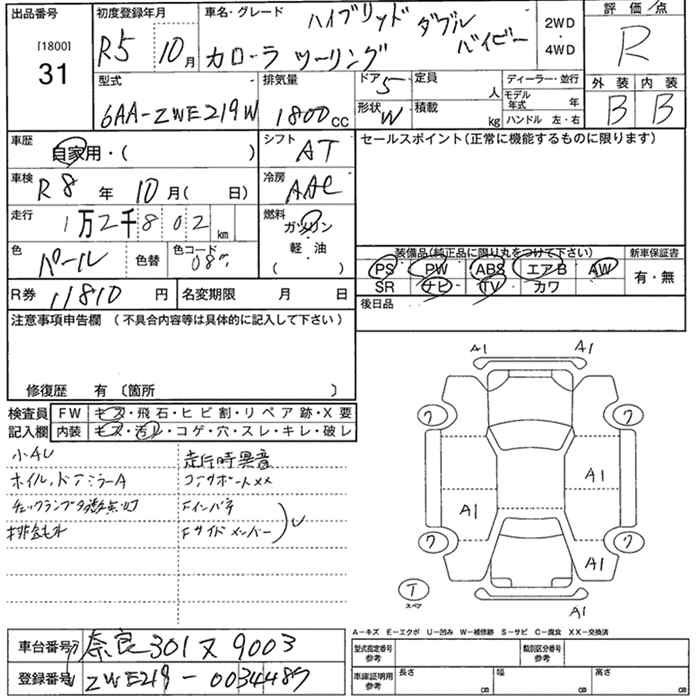 出品番号
[1800]
31
初度登録年月
R5 10月
車名・グレード
ハイブリッド ダブル バイビー
カローラ ツーリング
2WD
・
4WD
評価点
R
外装 内装
B B
型式
6AA-ZWE219W
排気量
1800cc
ドア 5
形状 W
定員 人
積載 kg
ディーラー・並行
モデル年式 年
ハンドル 左・右
車歴
自家用・( )
シフト
AT
セールスポイント(正常に機能するものに限ります)
車検
R8 年 10月( 日)
冷房
AAC
走行
1万2千802 km
燃料
ガソリン
軽・油
( )
色
パール
色替
色コード
装備品(純正品に限り丸をつけて下さい)
新車保証書
PS PW ABS エアB AW
有・無
SR ナビ TV カワ
R券 11810 円
名変期限 月 日
後日品
注意事項申告欄 (不具合内容等は具体的に記入して下さい)
修復歴 有〔箇所 〕
検査員
記入欄
FW キズ・飛石・ヒビ割・リペア跡・X要
内装 キズ・汚れ・コゲ・穴・スレ・キレ・破レ
小キU
走行時異音
ホイル,ドアミラーA
コアサポートXX
Fインパネ
排気もれ
Fサイドメンバー
A1 A1
ワ ワ
A1
A1
ワ ワ
A1
T
スペア
A1
A-キズ E-エクボ U-凹み W-補修跡 S-サビ C-腐食 XX-交換済
車台番号
奈良 301 ヌ 9003
登録番号
ZWE219-0034487
型式指定番号
参考
類別区分番号
参考
車庫証明用
参考
長さ cm
幅 cm
高さ cm